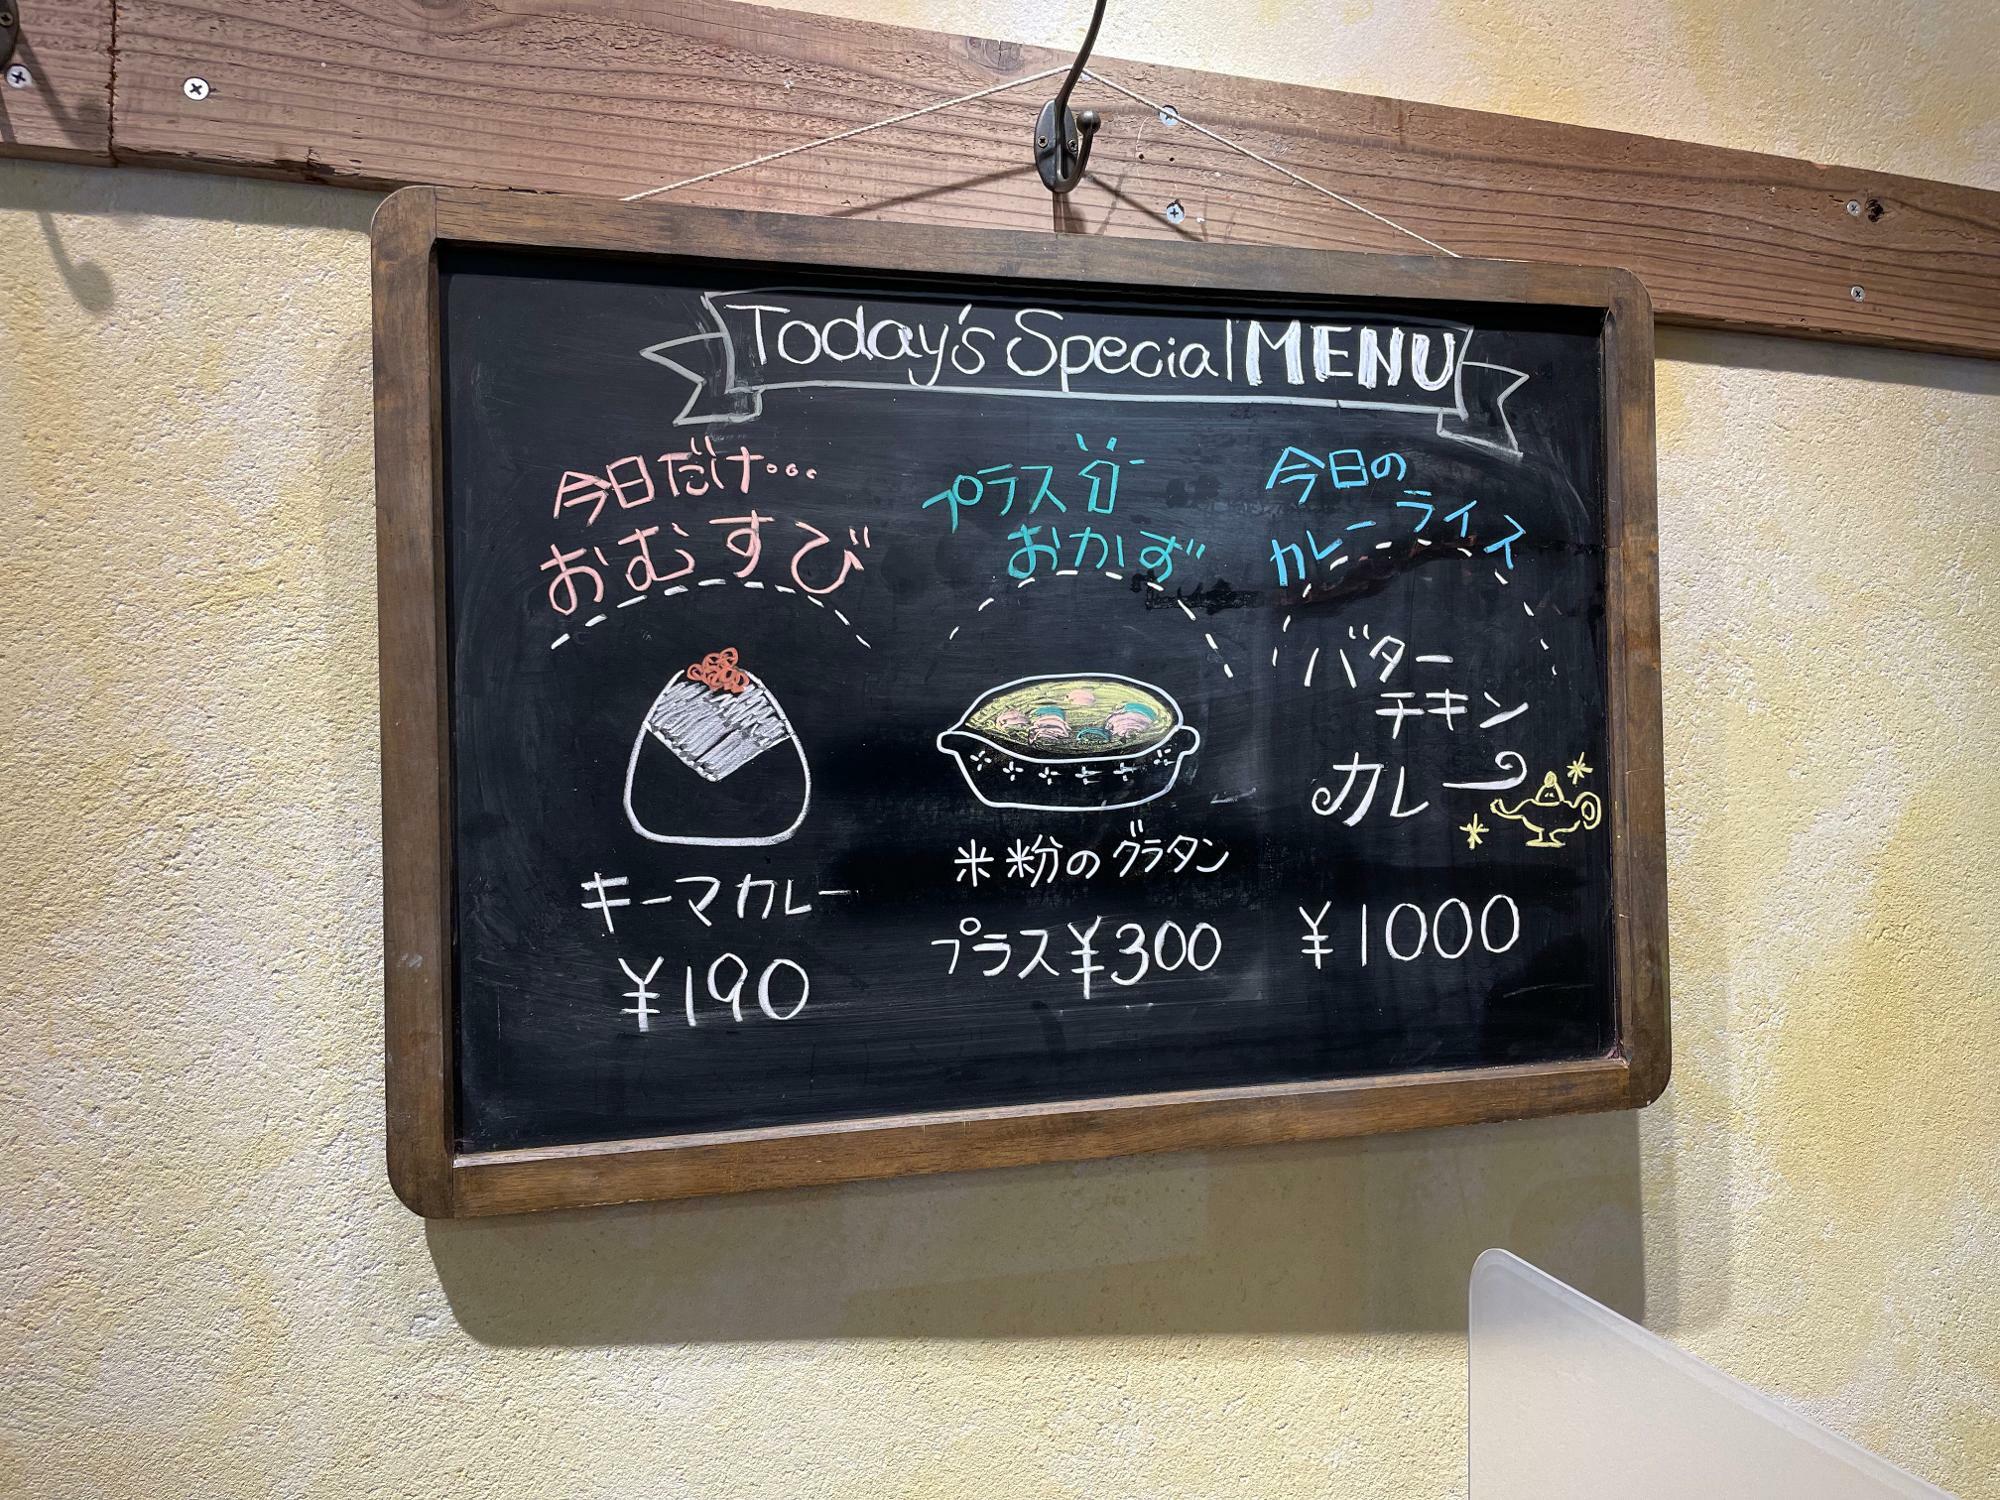 Today's Special MENU
今日だけ...
おむすび
キーマカレー
¥190
プラス
おかず
米粉のグラタン
プラス¥300
今日の
カレーライス
バター
チキン
カレー
¥1000